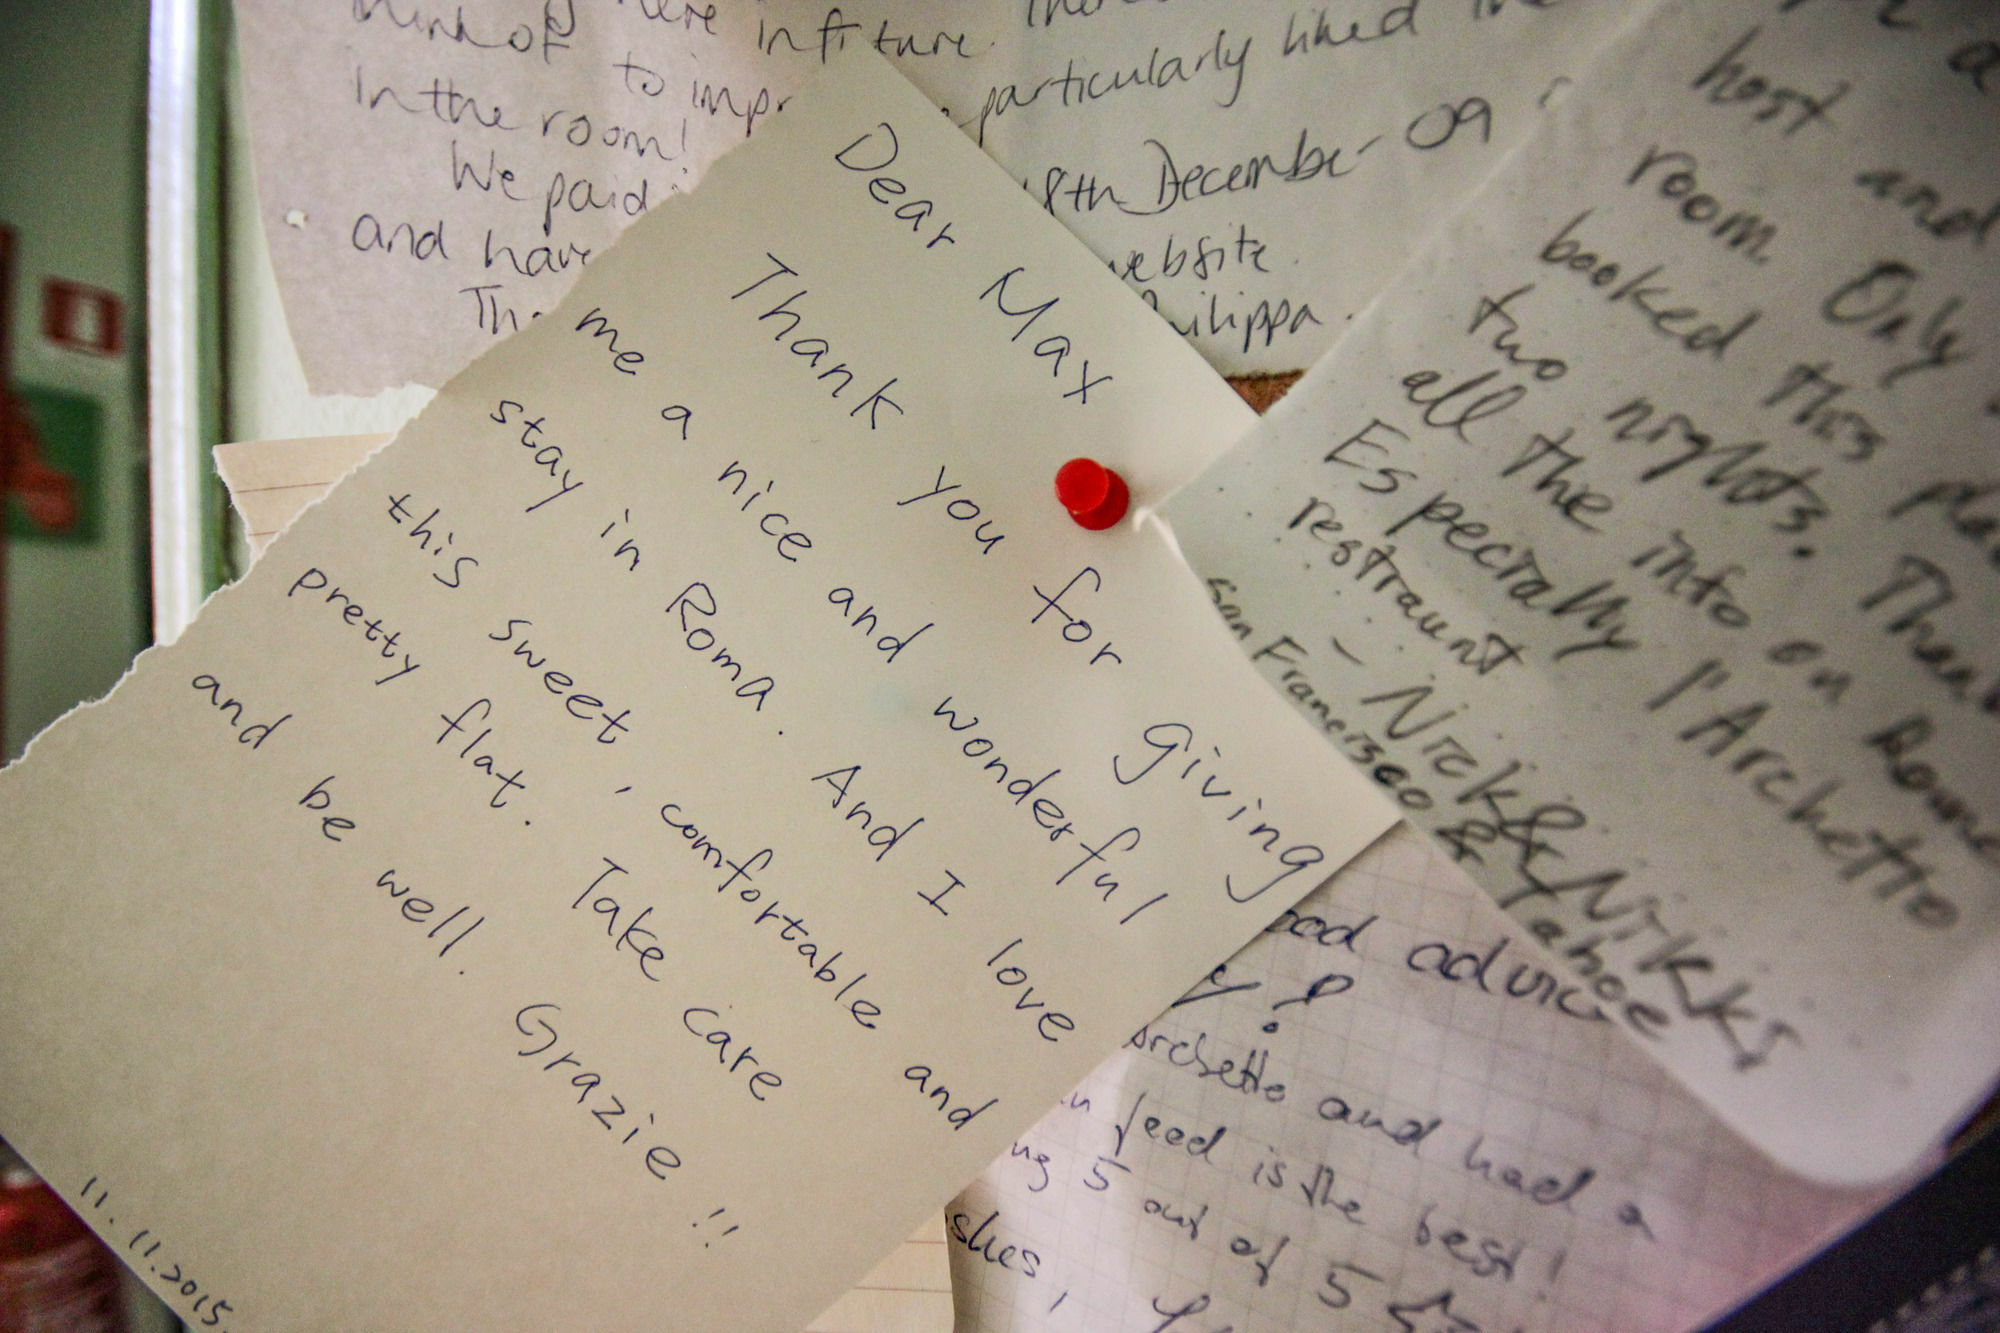 here in future.
think of to impr
particularly liked
in the room!
We paid
8th December 09
and have
website
Philippa.
Dear Max
Thank you for giving
me a nice and wonderful
stay in Roma. And I love
this sweet, comfortable and
pretty flat. Take care
and be well. Grazie!!
11.11.2015.
a
host and
room. Only
booked this
two nights.
all the info on Rome
Especially l'Archetto
restraunt
- Nick & Nikki
San Francisco & Tahoe
advice
Archetto and had a
feed is the best!
5 out of 5